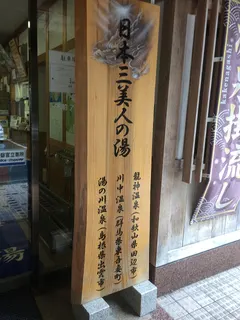 日本三美人の湯
龍神温泉(和歌山県田辺市)
川中温泉(群馬県東吾妻町)
湯の川温泉(島根県出雲市)
掛流し